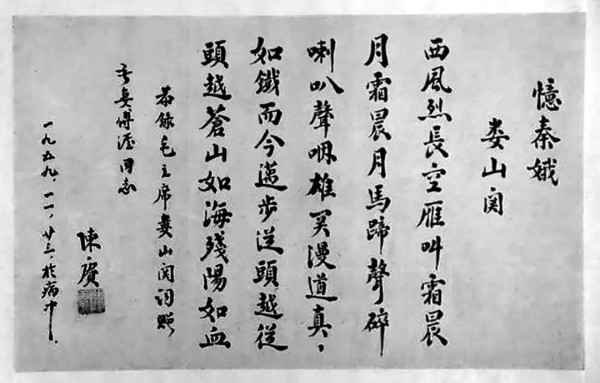 憶秦娥
娄山関
西風烈長空雁叫霜晨
月霜晨月馬蹄聲碎
喇叭聲咽雄関漫道真、
如鐵而今邁步從頭越從
頭越蒼山如海殘陽如血
恭錄毛主席娄山関詞贈
吾妻傅涯同志
陳賡
一九五九、一一、廿三、於病中.